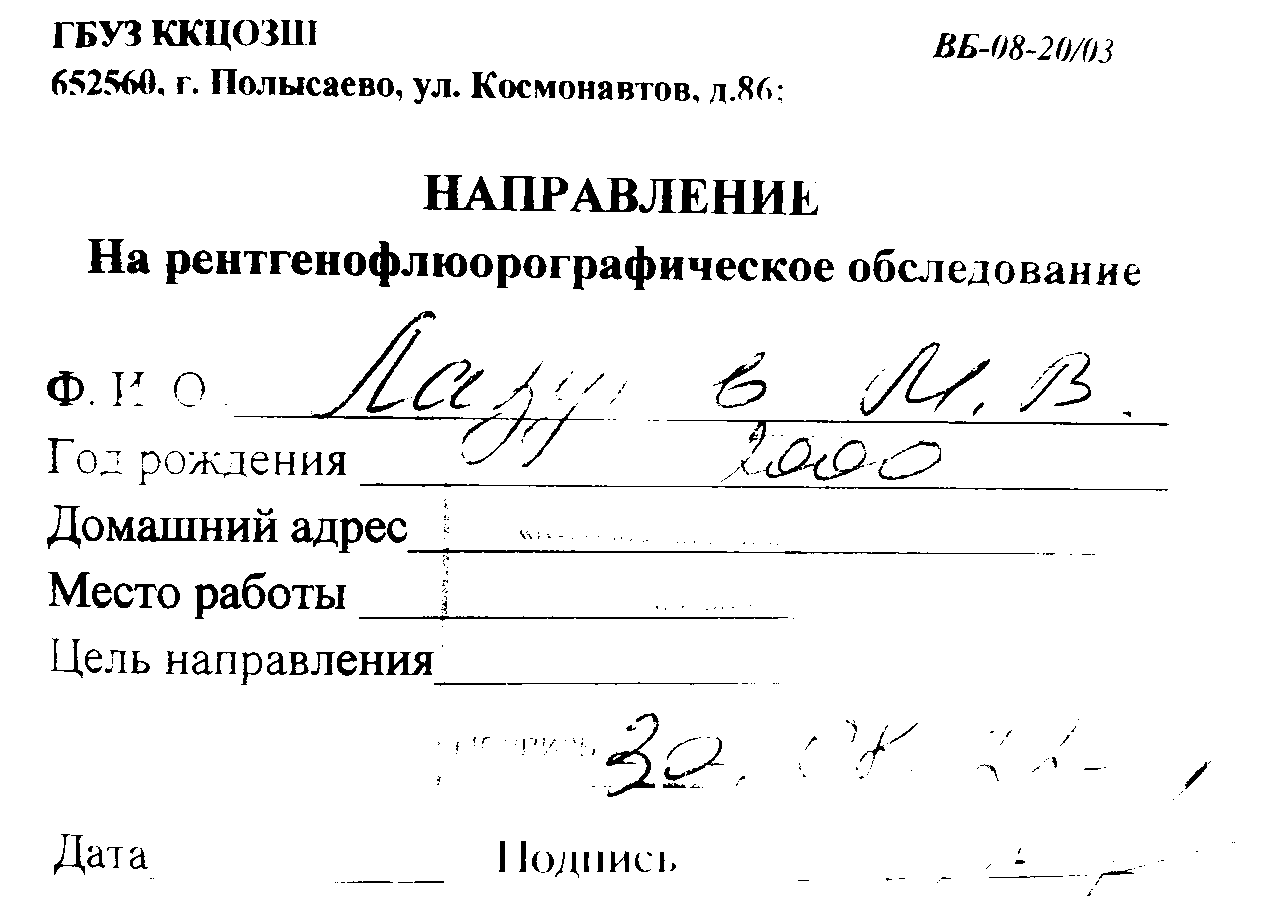 ГБУЗ ККЦОЗШ
ВБ-08-20/03
652560, г. Полысаево, ул. Космонавтов, д.86;
НАПРАВЛЕНИЕ
На рентгенофлюорографическое обследование
Ф. И О. М. В.
Год рождения 2000
Домашний адрес
Место работы
Цель направления
30.
Дата Подпись